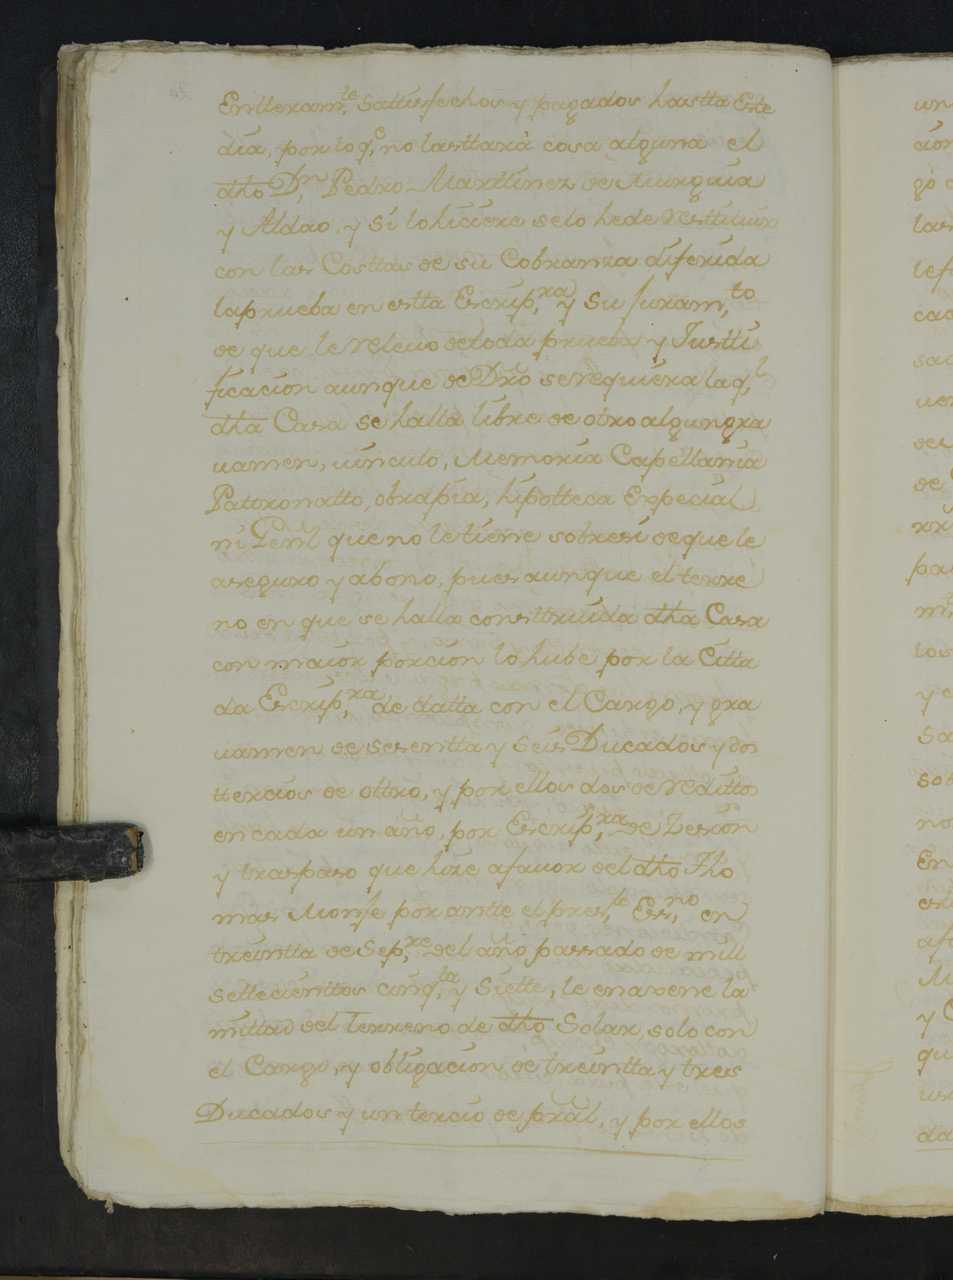 Entteram.te sattisfechos y pagados hastta Este
dia, por lo q.e no lasttará cosa alguna el
dho D.n Pedro Marttinez de Murguia
y Aldao, y si lo hiciere se lo he de resttituir
con las Costtas de su Cobranza diferida
la prueba en estta Escrip.ra y su Juram.to
de que le relevo de toda prueba y Justti
ficacion aunque de Dro se requiera la q.l
dha Casa se halla libre de otro algun gra
uamen, uinculo, Memoria Capellania
Pattronatto, obrapia, hipotteca Expecial
ni Genrl que no le tiene sobre si de que le
aseguro y abono, pues aunque el terre
no en que se halla consttruida dha Casa
con maior porcion lo hube por la Citta
da Escrip.ra de datta con el Cargo, y gra
uamen de sesentta y seis Ducados y dos
ttercios de ottro, y por ellos dos de redittos
en cada un año, por Escrip.ra de Zesion
y traspaso que hize a fauor del dho Tho
mas Monje por antte el pres.te Es.no en
treintta de Sep.re del año passado de mill
settecienttos cinq.ta y Siette, le enagene la
mittad del Terreno de dho Solar solo con
el Cargo, y obligacion de treintta y tres
Ducados y un tercio de pral, y por ellos